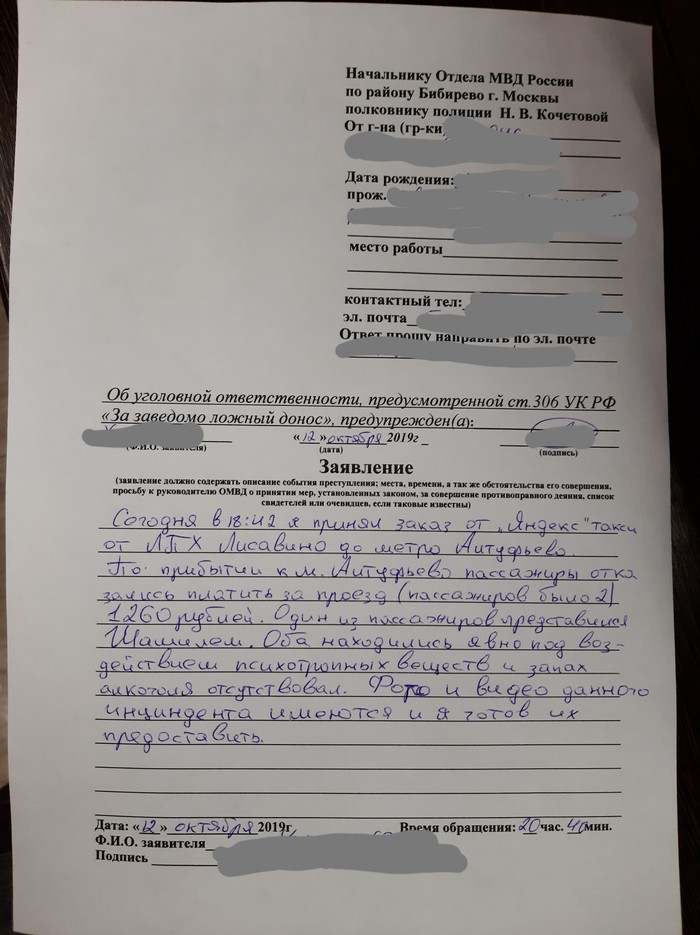 Начальнику Отдела МВД России
по району Бибирево г. Москвы
полковнику полиции Н. В. Кочетовой
От г-на (гр-ки)
Дата рождения:
прож.
место работы
контактный тел:
эл. почта
Ответ прошу направить по эл. почте
Об уголовной ответственности, предусмотренной ст.306 УК РФ
«За заведомо ложный донос», предупрежден(а):
«12» октября 2019г
(Ф.И.О. заявителя) (дата) (подпись)
Заявление
(заявление должно содержать описание события преступления; места, времени, а так же обстоятельства его совершения,
просьбу к руководителю ОМВД о принятии мер, установленных законом, за совершение противоправного деяния, список
свидетелей или очевидцев, если таковые известны)
Сегодня в 18:42 я принял заказ от „Яндекс" такси
от ЛПХ Лисавино до метро Алтуфьево.
По прибытии к м. Алтуфьево пассажиры отка
зались платить за проезд (пассажиров было 2)
1260 рублей. Один из пассажиров представился
Шамилем. Оба находились явно под воз-
действием психотропных веществ и запах
алкоголя отсутствовал. Фото и видео данного
инциндента имеются и я готов их
предоставить.
Дата: «12» октября 2019г, Время обращения: 20 час. 40 мин.
Ф.И.О. заявителя
Подпись